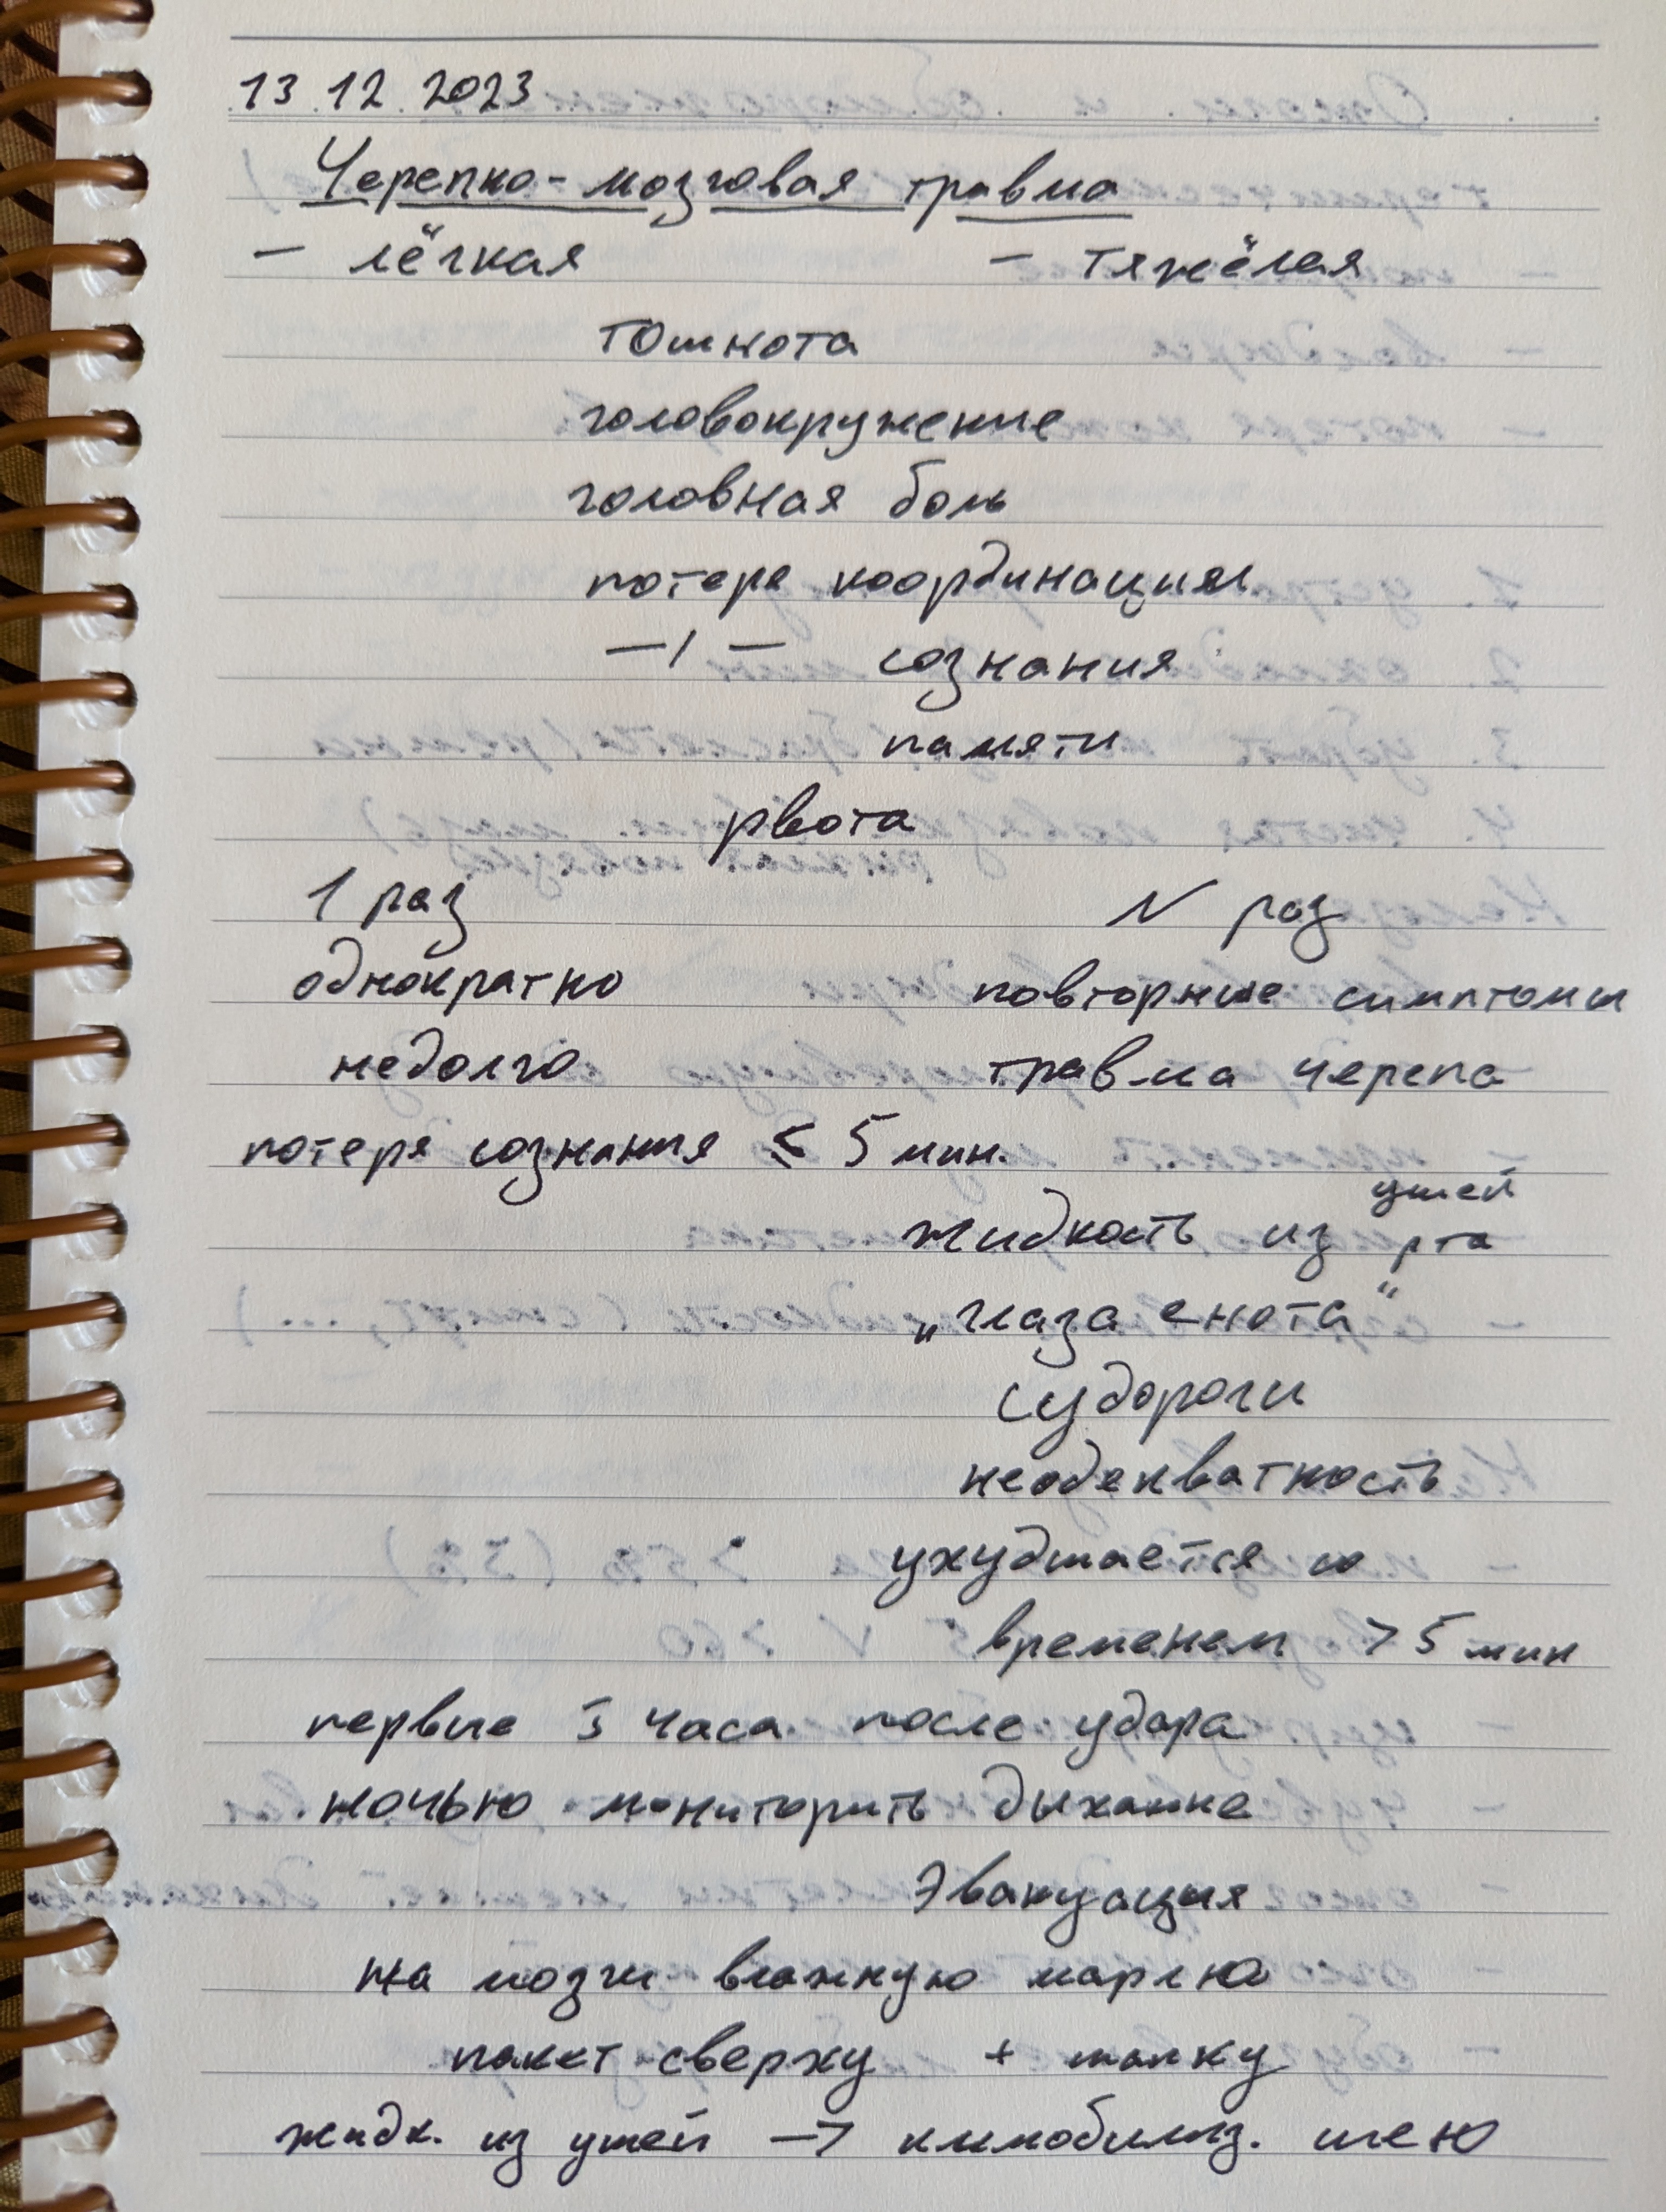 13.12.2023
Черепно-мозговая травма
- лёгкая - тяжёлая
тошнота
головокружение
головная боль
потеря координации
—/— сознания
памяти
рвота
1 раз N раз
однократно повторные симптомы
недолго травма черепа
потеря сознания ≤ 5 мин.
ушей
жидкость из рта
„глаза енота“
судороги
неадекватность
ухудшается со
временем > 5 мин
первые 3 часа после удара
ночью мониторить дыхание
Эвакуация
на мозги влажную марлю
пакет сверху + шапку
жидк. из ушей → иммобилиз. шею